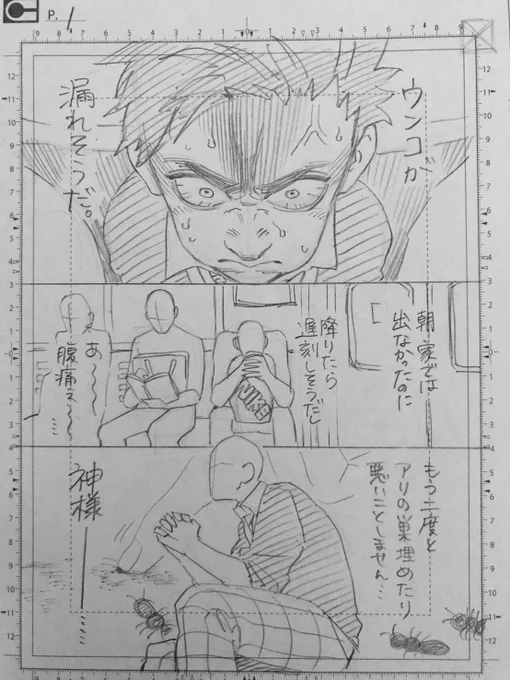 P. 1
ウンコが
漏れそうだ。
朝、家では
出なかったのに
降りたら
遅刻しそうだし
あ〜〜〜
腹痛え〜〜
もう二度と
アリの巣埋めたり
悪いことしません…
神様――